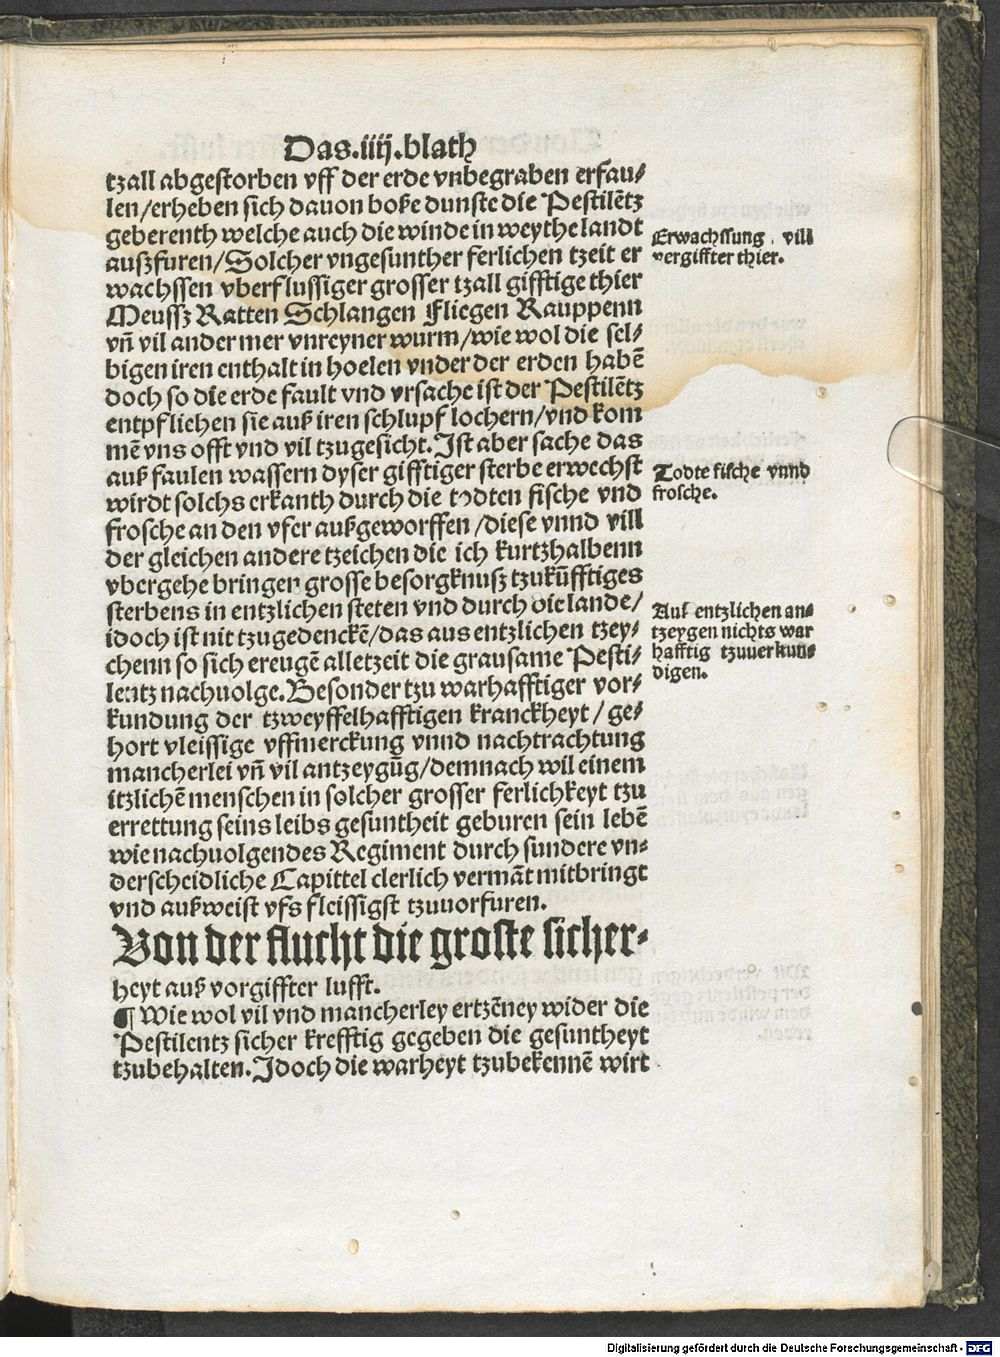 Das.iiij.blath
tzall abgestorben vff der erde vnbegraben erfau⸗
len/erheben sich dauon boße dunste die Pestilẽtz
geberenth welche auch die winde in weythe landt
auszfuren/Solcher vngesunther ferlichen tzeit er
wachssen vberflussiger grosser tzall gifftige thier
Meussz Ratten Schlangen Fliegen Rauppenn
vñ vil ander mer vnreyner wurm/wie wol die sel⸗
bigen iren enthalt in hoelen vnder der erden habẽ
doch so die erde fault vnd vrsache ist der Pestilẽtz
entpflichen sie auß iren schlupf lochern/vnd kom
mẽ vns offt vnd vil tzugesicht.Ist aber sache das
auß faulen wassern dyser gifftiger sterbe erwechst
wirdt solchs erkanth durch die todten fische vnd
frosche an den vfer außgeworffen/diese vnnd vill
der gleichen andere tzeichen die ich kurtzhalbenn
vbergehe bringen grosse besorgknusz tzukũfftiges
sterbens in entzlichen steten vnd durch die lande/
idoch ist nit tzugedenckẽ/das aus entzlichen tzey⸗
chenn so sich ereugẽ alletzeit die grausame Pesti⸗
lentz nachuolge.Besonder tzu warhafftiger vor⸗
kundung der tzweyffelhafftigen kranckheyt/ge⸗
hort vleissige vffmerckung vnnd nachtrachtung
mancherlei vñ vil antzeygũg/demnach wil einem
itzlichẽ menschen in solcher grosser ferlichkeyt tzu
errettung seins leibs gesuntheit geburen sein lebẽ
wie nachuolgendes Regiment durch sundere vn⸗
derscheidliche Capittel clerlich vermãt mitbringt
vnd außweist vfs fleissigst tzuuorfuren.
Von der flucht die groste sicher⸗
heyt auß vorgiffter lufft.
¶ Wie wol vil vnd mancherley ertzẽney wider die
Pestilentz sicher krefftig gegeben die gesuntheyt
tzubehalten.Idoch die warheyt tzubekennẽ wirt
Erwachssung vill
vergiffter thier.
Todte fische vnnd
frosche.
Auß entzlichen an⸗
tzeygen nichts war
hafftig tzuuerkun⸗
digen.
Digitalisierung gefördert durch die Deutsche Forschungsgemeinschaft - DFG